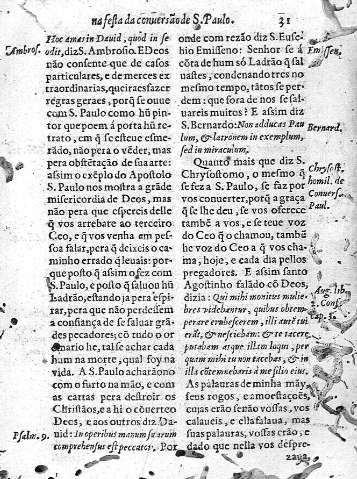 na festa da conversão de S. Paulo. 31
Ambros.
Hoc amat in Dauid, quod in se
odit, diz S. Ambrosio. E Deos
não consente que de casos
particulares, e de merces ex
traordinarias, queiraes fazer
regras geraes, porq̃ se ouue
com S. Paulo como hũ pin-
tor que poem á porta hũ re-
trato, em q̃ se esteue esme-
rãdo, não pera o vẽder, mas
pera obstẽtação de sua arte:
assim o exẽplo do Apostolo
S. Paulo nos mostra a grãde
misericordia de Deos, mas
não pera que espereis delle
q̃ vos arrebate ao terceiro
Ceo, e q̃ vos venha em pes-
soa falar, pera q̃ deixeis o ca-
minho errado q̃ leuais: por-
que posto q̃ assim o fez com
S. Paulo, e posto q̃ saluou hũ
Ladrão, estando ja pera espi-
rar, pera que não perdessem
a confiança de se saluar grãn-
des pecadores; cõ tudo o or
dinario he, tal se achar cada
hum na morte, qual foy na
vida. A S. Paulo acharão no
com o furto na mão, e com
as cartas pera destroir os
Christãos, e a hi o cõuerteo
Deos, e aos outros diz Da-
uid: In operibus manuum suarum
comprehensus est peccator. Por
Psalm. 9.
onde com rezão diz S. Euse-
bio Emisseno: Senhor se á
cõta de hum só Ladrão q̃ sal
uastes, condenando tres no
mesmo tempo, tãtos se per-
dem: que sora de nos se sal-
uareis muitos? E assim diz
S. Bernardo: Non adducas Pau
lum, & latronem in exemplum,
sed in miraculum.
Quanto mais que diz S.
Chrysostomo, o mesmo q̃
se feza S. Paulo, se faz por
vos conuerter, porq̃ a graça
q̃ se lhe deu, se vos oferece
tambẽ a vos, e se teue voz
do Ceo q̃ o chamou, tambẽ
he voz do Ceo a q̃ vos cha-
ma, hoje, e cada dia pellos
pregadores. E assim santo
Agostinho falãdo cõ Deos,
dizia: Qui mihi monitus mulie-
bres videbantur, quibus obtem-
perare erubescerem, illi autẽ tui
erãt, & nesciebam: & te tacere
putabam atque illam loqui, per
quam mihi tu non tacebas, & in
illa cõtemnebaris à me filio eius.
As palauras de minha mãy
seus rogos, e amoestações,
cujas erão senão vossas, vos
calaueis, e ella falaua, mas
suas palauras, vossas erão, e
dado que nella vos despre-
zaua
Emissen.
Bernard.
Chrysost.
homil. de
Conuers.
Paul.
Aug. lib.
2. Conf.
cap. 3.